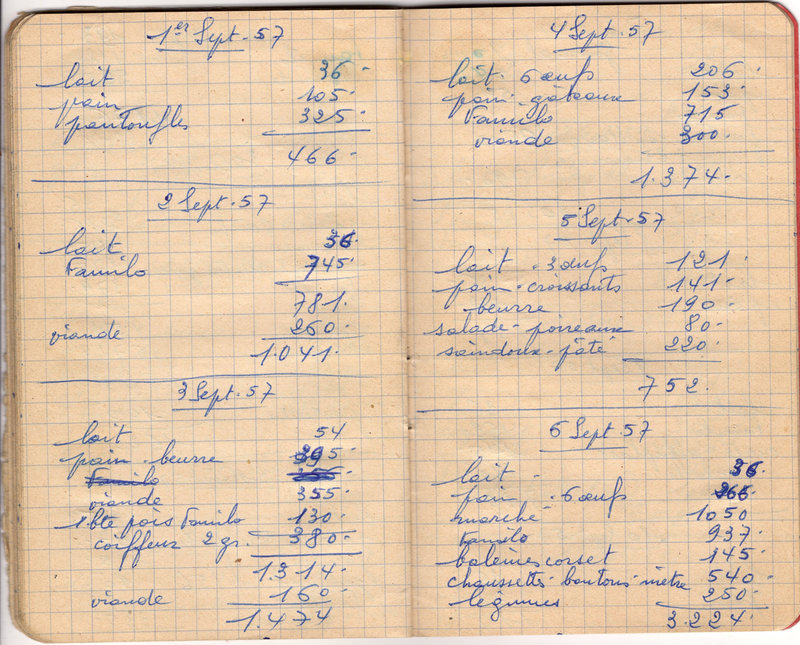 1er Sept. 57
lait 36
pain 105
pantoufles 325
466
2 Sept. 57
lait 36
Familo 745
781
viande 260
1.041
3 Sept. 57
lait 54
pain - beurre 395
Familo
viande 355
1 bte pois Familo 130
coiffeur 2 gr. 380
1.314
viande 160
1.474
4 Sept. 57
lait - 6 œufs 206
pain - gâteaux 153
Familo 715
viande 300
1.374
5 Sept. 57
lait - 3 œufs 121
pain - croissants 141
beurre 190
salade - poireaux 80
saindoux - pâté 220
752
6 Sept. 57
lait - 36
pain - 6 œufs 266
marché 1050
Familo 937
baleines corset 145
chaussettes - boutons - mètre 540
légumes 250
3.224